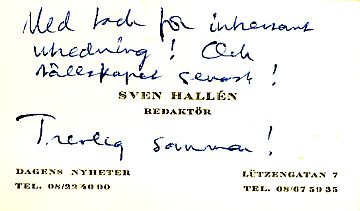 Med tack för intressant
utredning! Och
sällskapet senast!
SVEN HALLÉN
REDAKTÖR
Trevlig sommar!
DAGENS NYHETER
LÜTZENGATAN 7
TEL. 08/22 40 90
TEL. 08/67 59 35